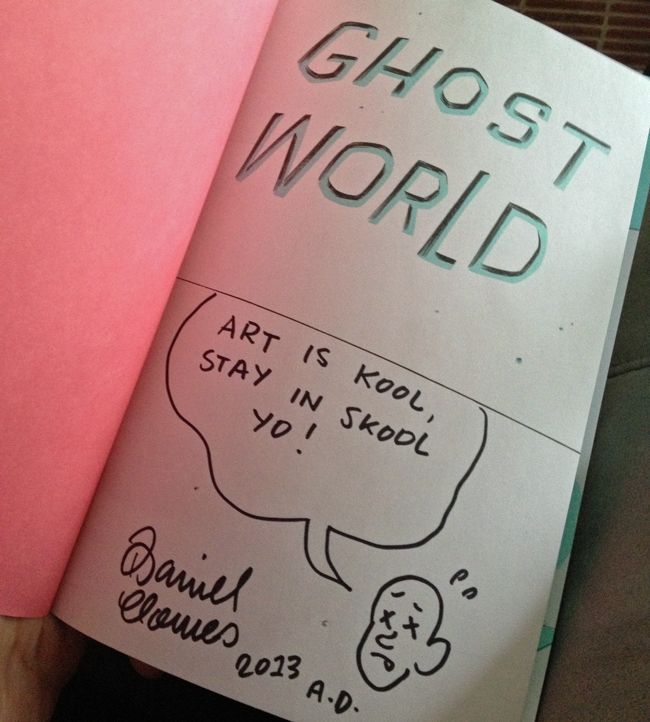 GHOST
WORLD
ART IS KOOL,
STAY IN SKOOL
YO!
Daniel
Clowes
2013
A.D.